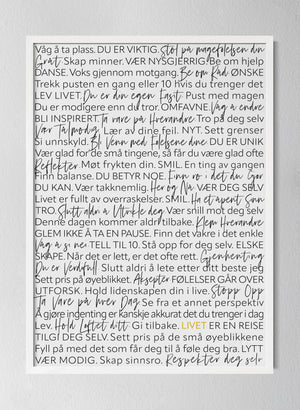 Våg å ta plass. DU ER VIKTIG. Stol på magefølelsen din
Gråt Skap minner. VÆR NYSGJERRIG! Be om hjelp
DANSE. Voks gjennom motgang. Be om Råd ØNSKE
Trekk pusten en gang eller 10 hvis du trenger det
LEV LIVET. Du er din egen Fasit Pust med magen
Du er modigere enn du tror. OMFAVNE. Våg å endre
BLI INSPIRERT. Ta vare på Hverandre Tro på deg selv
Vær Tålmodig Lær av dine feil. NYT. Sett grenser
Si unnskyld. Bli Venn med Følelsene dine DU ER UNIK
Vær glad for de små tingene, så får du være glad ofte
Reflekter Møt frykten din. SMIL. En ting av gangen
Finn balanse. DU BETYR NOE. Finn ro i det du Gjør
DU KAN. Vær takknemlig. Her og Nå VÆR DEG SELV
Livet er fullt av overraskelser. SMIL. Ha et åpent Sinn
TRO. Slutt aldri å Utvikle deg Vær snill mot deg selv
Denne dagen kommer aldri tilbake. Klem Hverandre
GLEM IKKE Å TA EN PAUSE. Finn det vakre i det enkle
Våg å si nei TELL TIL 10. Stå opp for deg selv. ELSKE
SKAPE. Når det er lett, er det ofte rett. Gjenhenting
Du er Verdfull Slutt aldri å lete etter ditt beste jeg
Sett pris på øyeblikket. Aksepter FØLELSER GÅR OVER
UTFORSK. Hold lidenskapen din i live. Stopp Opp
Ta Vare på hver Dag Se fra et annet perspektiv
Å gjøre ingenting er kanskje akkurat det du trenger i dag
Lev. Hold Løftet ditt Gi tilbake. LIVET ER EN REISE
TILGI DEG SELV. Sett pris på de små øyeblikkene
Fyll på med det som får deg til å føle deg bra. LYTT
VÆR MODIG. Skap sinnsro. Respekter deg selv